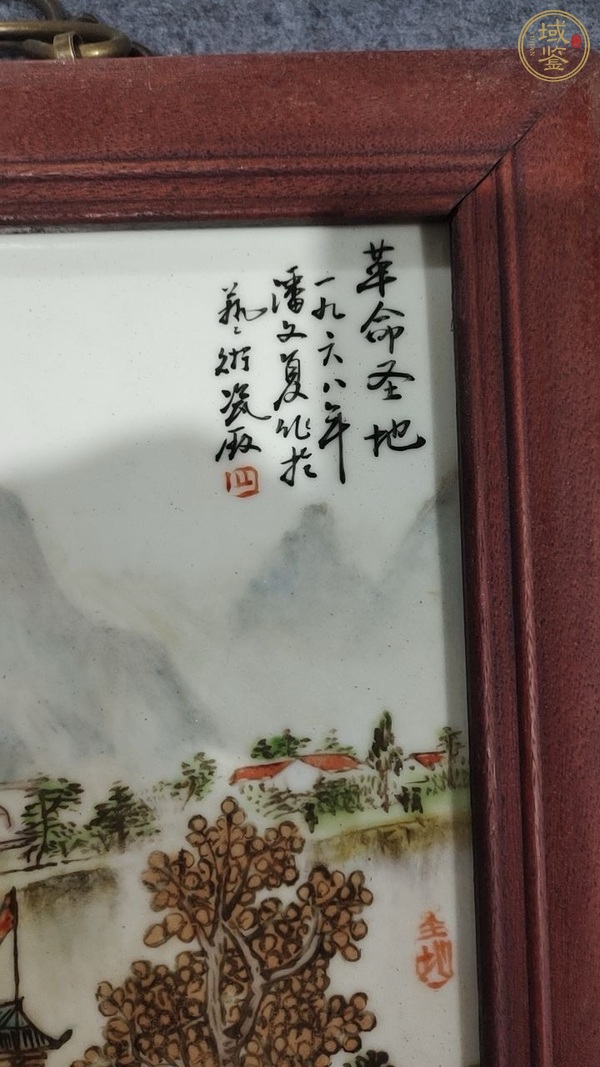 革命圣地
一九六八年
潘文夏作於
艺术瓷厰
四
圣地
域鉴